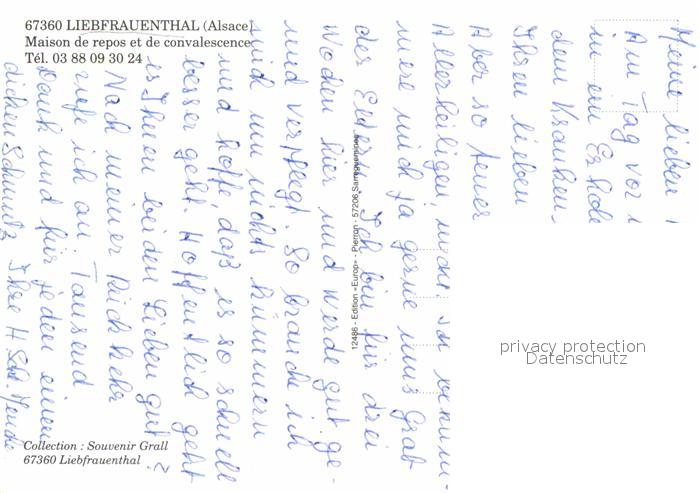 67360 LIEBFRAUENTHAL (Alsace)
Maison de repos et de convalescence
Tél. 03 88 09 30 24
Meine lieben
Am Tag vor
in ein Erhole
dem Kranken-
Ihren lieben
Aber so teuer
Allerheiligen, nicht ich
mere mich ja gerne ums Grab
der Eltern. Ich bin für drei
Wochen hier und werde gut ge-
und verpflegt. So brauche ich
mich um nichts kümmern
und hoffe, daß es so schnell
besser geht. Hoffentlich geht
es Ihnen beiden Lieben gut?
Nach meiner Rückkehr
rufe ich an. Tausend
Dank und für jeden einen
dicken Schmutz Ihre H
12486 - Edition «Europ» - Pierron - 57206 Sarreguemines
Collection : Souvenir Grall
67360 Liebfrauenthal
privacy protection
Datenschutz